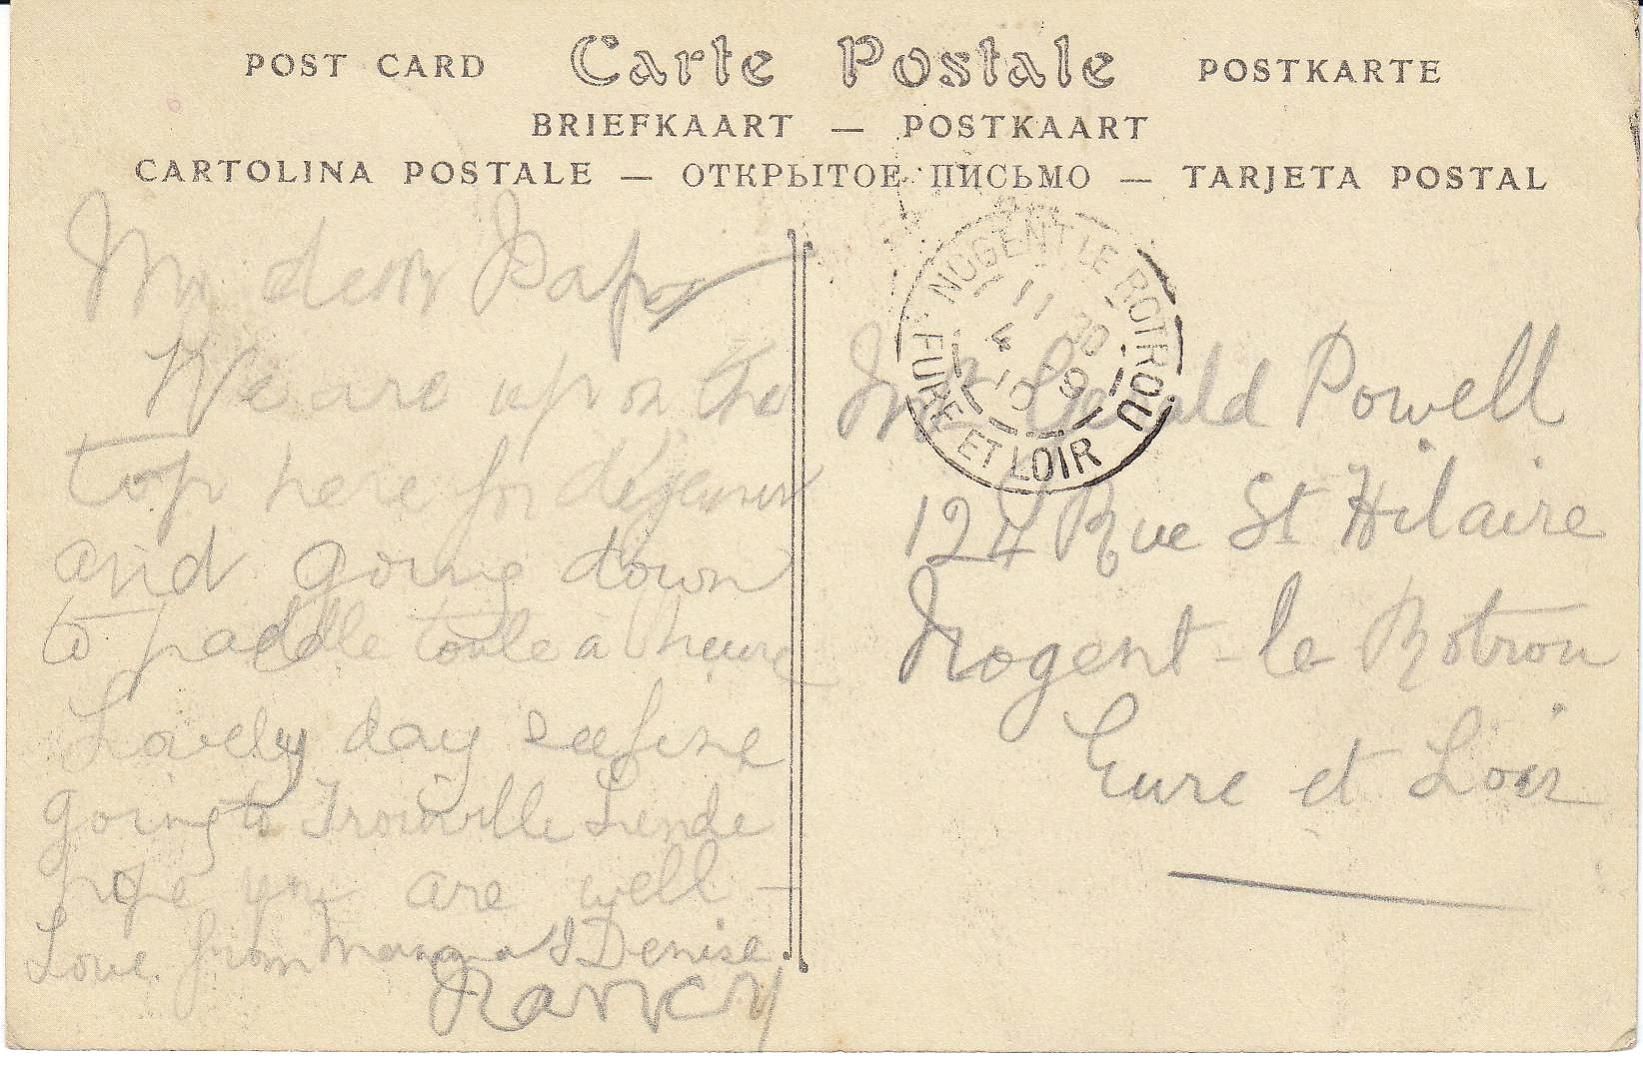 POST CARD Carte Postale POSTKARTE
BRIEFKAART — POSTKAART
CARTOLINA POSTALE — ОТКРЫТОЕ ПИСЬМО — TARJETA POSTAL
My dear Papa
We are up on the
top here for déjeuner
and going down
to paddle toute à heure
Lovely day
going to Trouville
hope you are well —
Love from Mamma & Denise
Nancy
NOGENT LE ROTROU
11 30
4 9
10
EURE ET LOIR
Gerald Powell
124 Rue St Hilaire
Nogent-le Rotrou
Eure et Loir